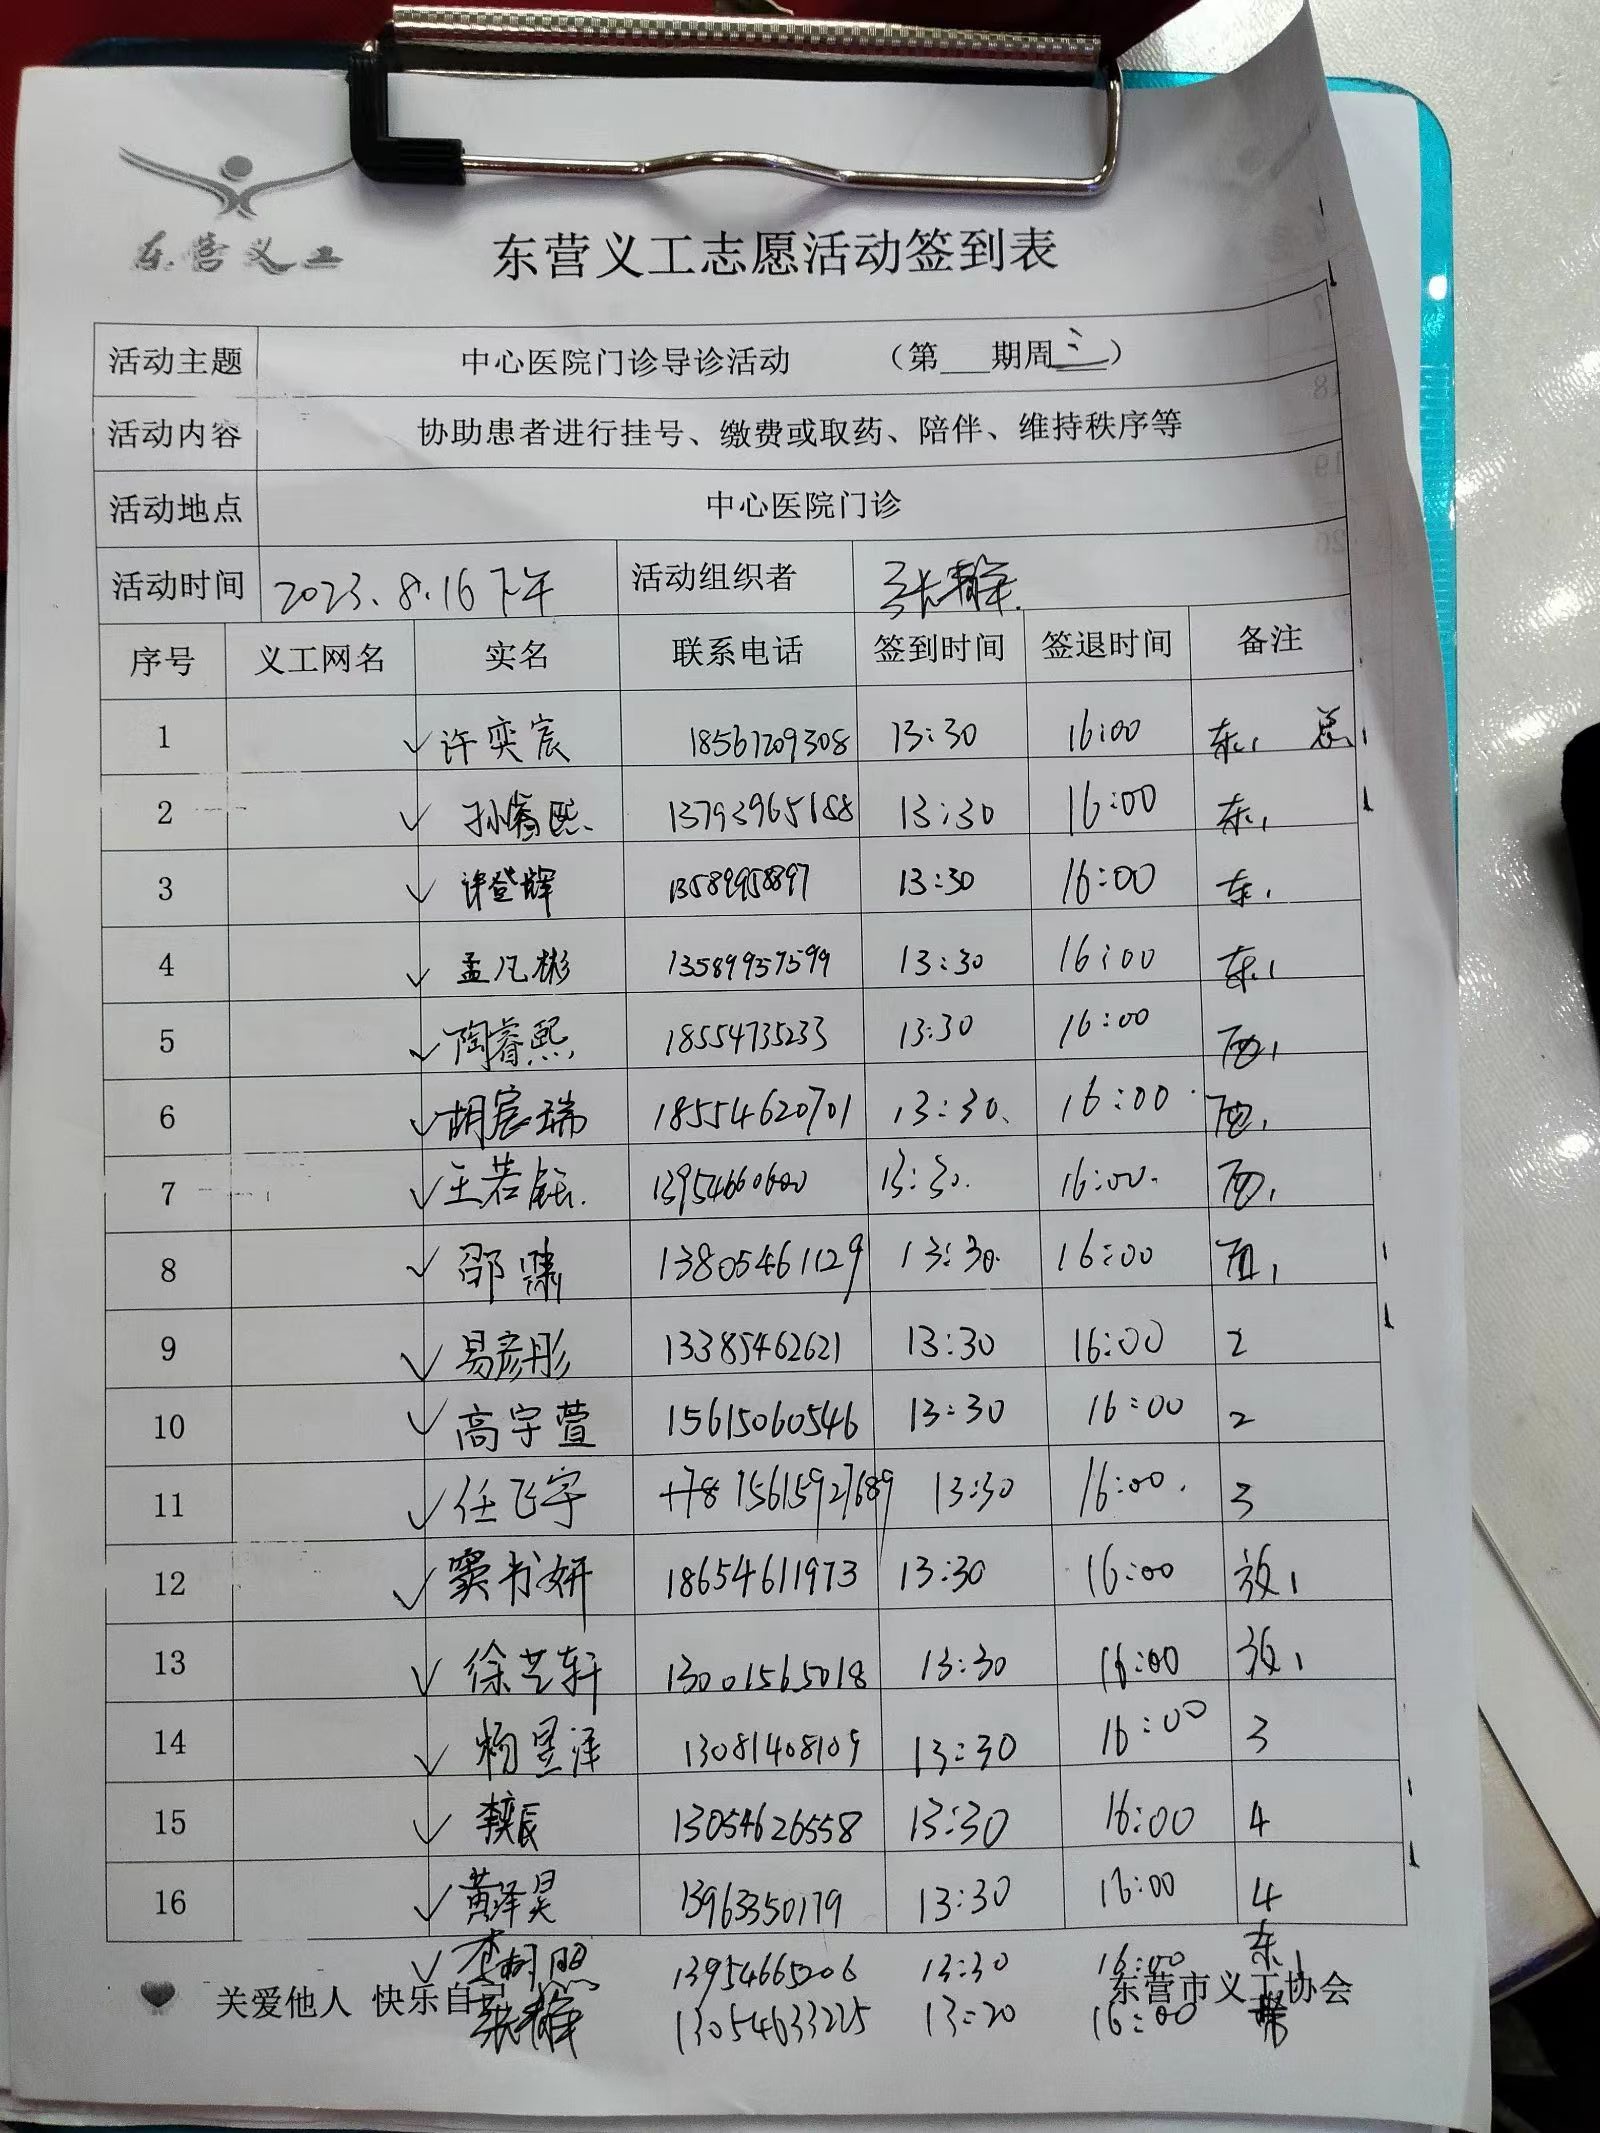 东营义工
东营义工志愿活动签到表
活动主题 中心医院门诊导诊活动 （第___期周三）
活动内容 协助患者进行挂号、缴费或取药、陪伴、维持秩序等
活动地点 中心医院门诊
活动时间 2023.8.16下午 活动组织者 张静
序号 义工网名 实名 联系电话 签到时间 签退时间 备注
1 ✓许奕宸 18561209308 13:30 16:00 东1 总
2 ✓孙睿熙 13793965188 13:30 16:00 东1
3 ✓许登辉 13589958897 13:30 16:00 东1
4 ✓孟凡彬 13589957599 13:30 16:00 东1
5 ✓陶睿熙 18554735233 13:30 16:00 西1
6 ✓胡宸瑞 18554620701 13:30 16:00 西1
7 ✓王若钰 13954660600 13:30 16:00 西1
8 ✓邵啸 13805461129 13:30 16:00 西1
9 ✓易彦彤 13385462621 13:30 16:00 2
10 ✓高宇萱 15615060546 13:30 16:00 2
11 ✓任飞宇 15615927689 13:30 16:00 3
12 ✓窦书妍 18654611973 13:30 16:00 放1
13 ✓徐艺轩 13001565018 13:30 16:00 放1
14 ✓杨昱泽 13081408109 13:30 16:00 3
15 ✓李奕辰 13054626558 13:30 16:00 4
16 ✓黄泽昊 13963350179 13:30 16:00 4
✓李 13954665206 13:30 16:00 东1
关爱他人 快乐自己 东营市义工协会
张静 13054633225 13:20 16:00